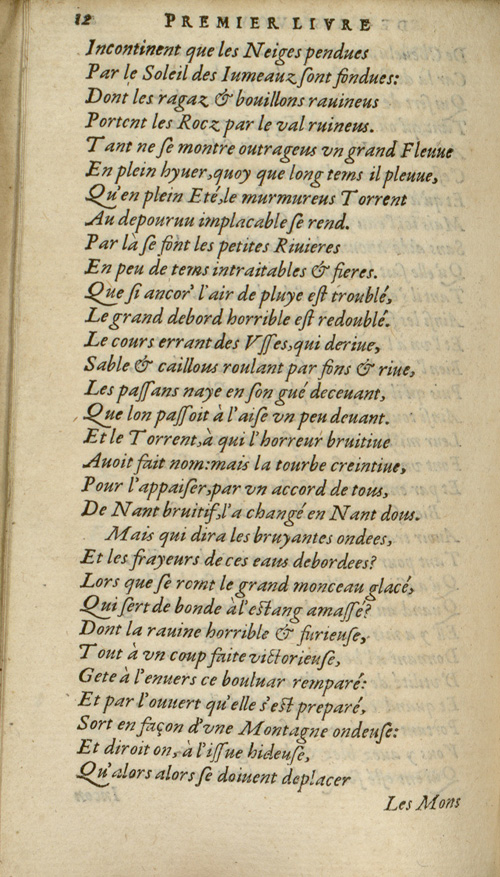 12 PREMIER LIVRE
Incontinent que les Neiges pendues
Par le Soleil des Iumeauz ſont fondues:
Dont les ragaz & bouillons rauineus
Portent les Rocz par le val ruineus.
Tant ne ſe montre outrageus vn grand Fleuue
En plein hyuer, quoy que long tems il pleuue,
Qu'en plein Eté, le murmureus Torrent
Au depouruu implacable ſe rend.
Par là ſe font les petites Riuieres
En peu de tems intraitables & fieres.
Que ſi ancor' l'air de pluye eſt troublé,
Le grand debord horrible eſt redoublé.
Le cours errant des Vſſes, qui deriue,
Sable & caillous roulant par fons & riue,
Les paſſans naye en ſon gué deceuant,
Que lon paſſoit à l'aiſe vn peu deuant.
Et le Torrent, à qui l'horreur bruitiue
Auoit fait nom: mais la tourbe creintiue,
Pour l'appaiſer, par vn accord de tous,
De Nant bruitif, l'a changé en Nant dous.
Mais qui dira les bruyantes ondees,
Et les frayeurs de ces eaus debordees?
Lors que ſe romt le grand monceau glacé,
Qui ſert de bonde à l'eſtang amaſſé?
Dont la rauine horrible & furieuſe,
Tout à vn coup faite victorieuſe,
Gete à l'enuers ce bouluar remparé:
Et par l'ouuert qu'elle s'eſt preparé,
Sort en façon d'vne Montagne ondeuſe:
Et diroit on, à l'iſſue hideuſe,
Qu'alors alors ſe doiuent deplacer
Les Mons